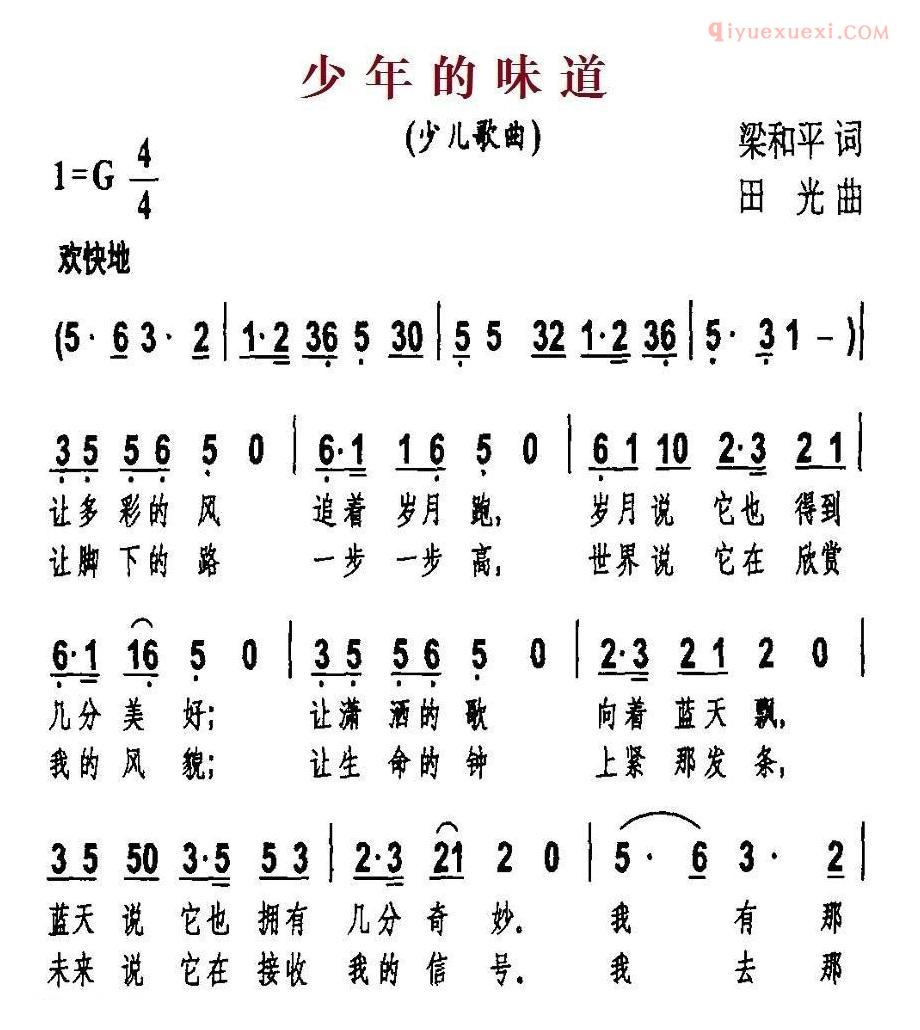 qiyuexuexi.COM
少年的味道
(少儿歌曲)
梁和平 词
1=G 4/4
田 光 曲
欢快地
(5· 6 3· 2 | 1·2 36 5 30 | 5 5 32 1·2 36 | 5· 3 1 – )|
3 5 5 6 5 0 | 6·1 1 6 5 0 | 6 1 10 2·3 2 1 |
让多 彩的 风 追着 岁月 跑, 岁月 说 它也 得到
让脚 下的 路 一步 一步 高, 世界 说 它在 欣赏
6·1 16 5 0 | 3 5 5 6 5 0 | 2·3 2 1 2 0 |
几分 美 好; 让潇 洒的 歌 向着 蓝天 飘,
我的 风 貌; 让生 命的 钟 上紧 那发 条,
3 5 50 3·5 5 3 | 2·3 21 2 0 | 5· 6 3· 2 |
蓝天 说 它也 拥有 几分 奇 妙. 我 有 那
未来 说 它在 接收 我的 信 号. 我 去 那